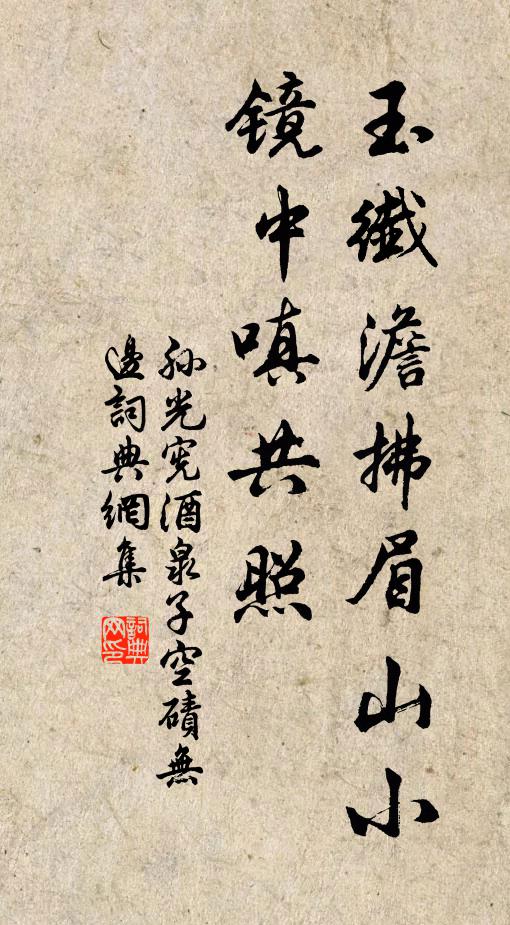 玉纖澹拂眉山小
镜中嗔共照
孙光宪酒泉子空磧無
邊詞典網集
詞典
网印